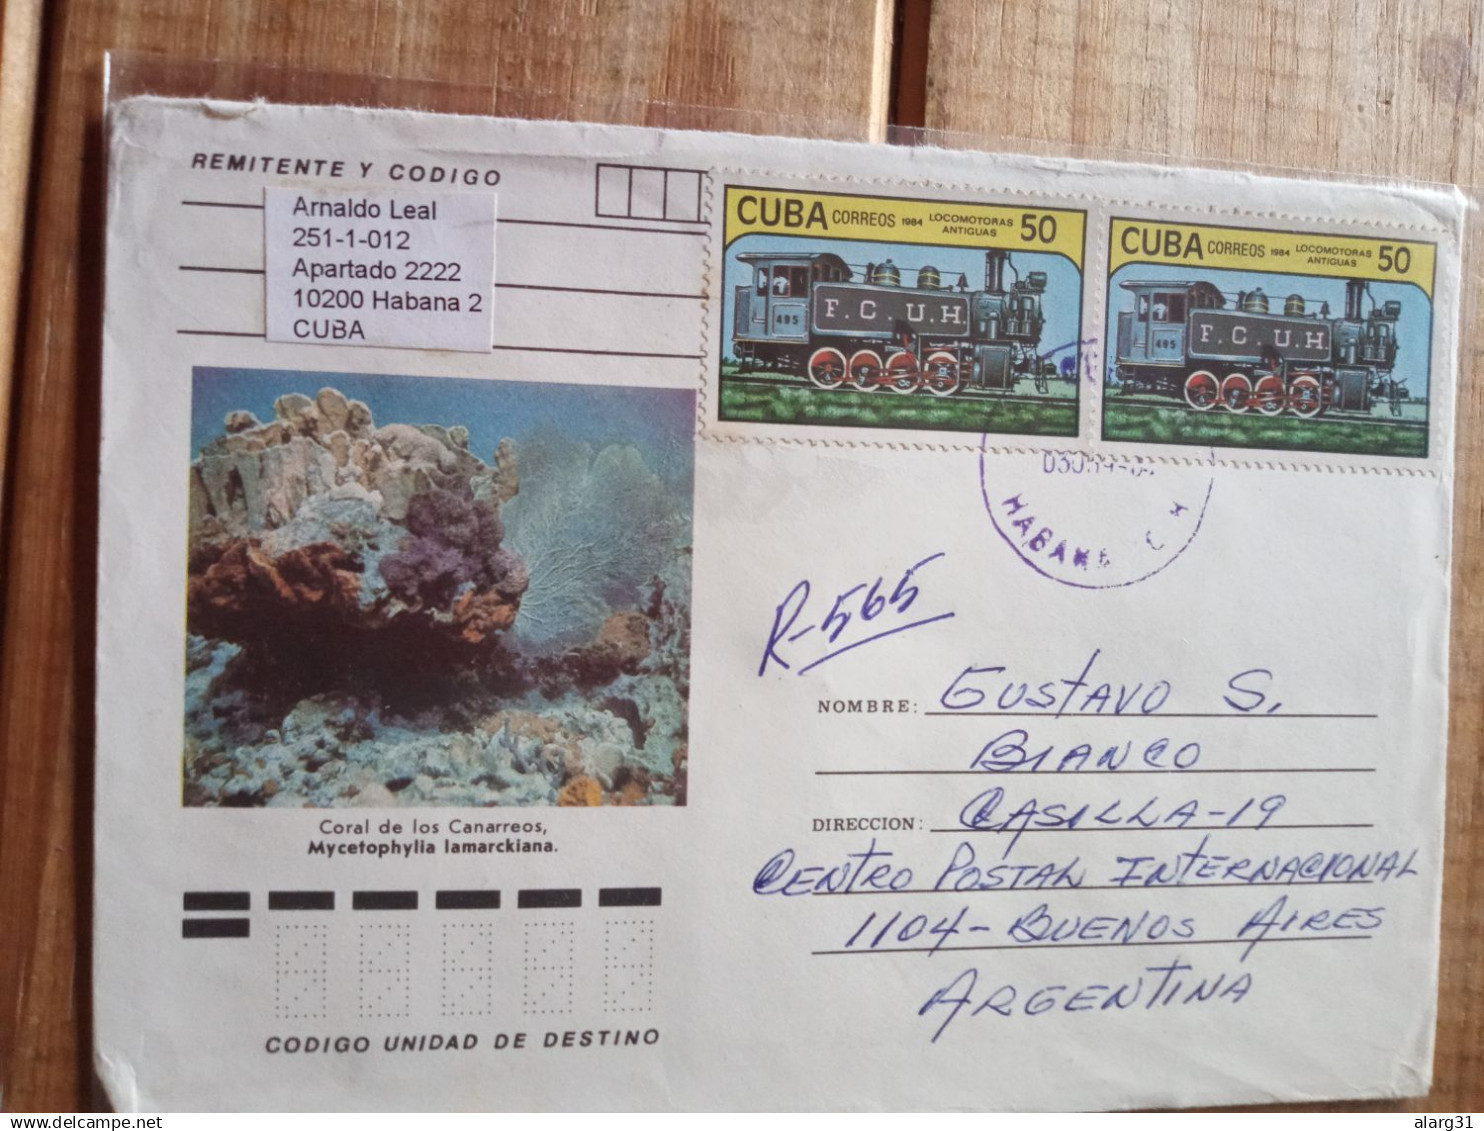 REMITENTE Y CODIGO
Arnaldo Leal
251-1-012
Apartado 2222
10200 Habana 2
CUBA
CUBA CORREOS 1984 LOCOMOTORAS ANTIGUAS 50
F.C.U.H.
495
CUBA CORREOS 1984 LOCOMOTORAS ANTIGUAS 50
F.C.U.H.
495
HABANA
R-565
NOMBRE: GUSTAVO S.
BIANCO
DIRECCION: CASILLA-19
CENTRO POSTAL INTERNACIONAL
1104-BUENOS AIRES
ARGENTINA
Coral de los Canarreos,
Mycetophylia lamarckiana.
CODIGO UNIDAD DE DESTINO
alarg31